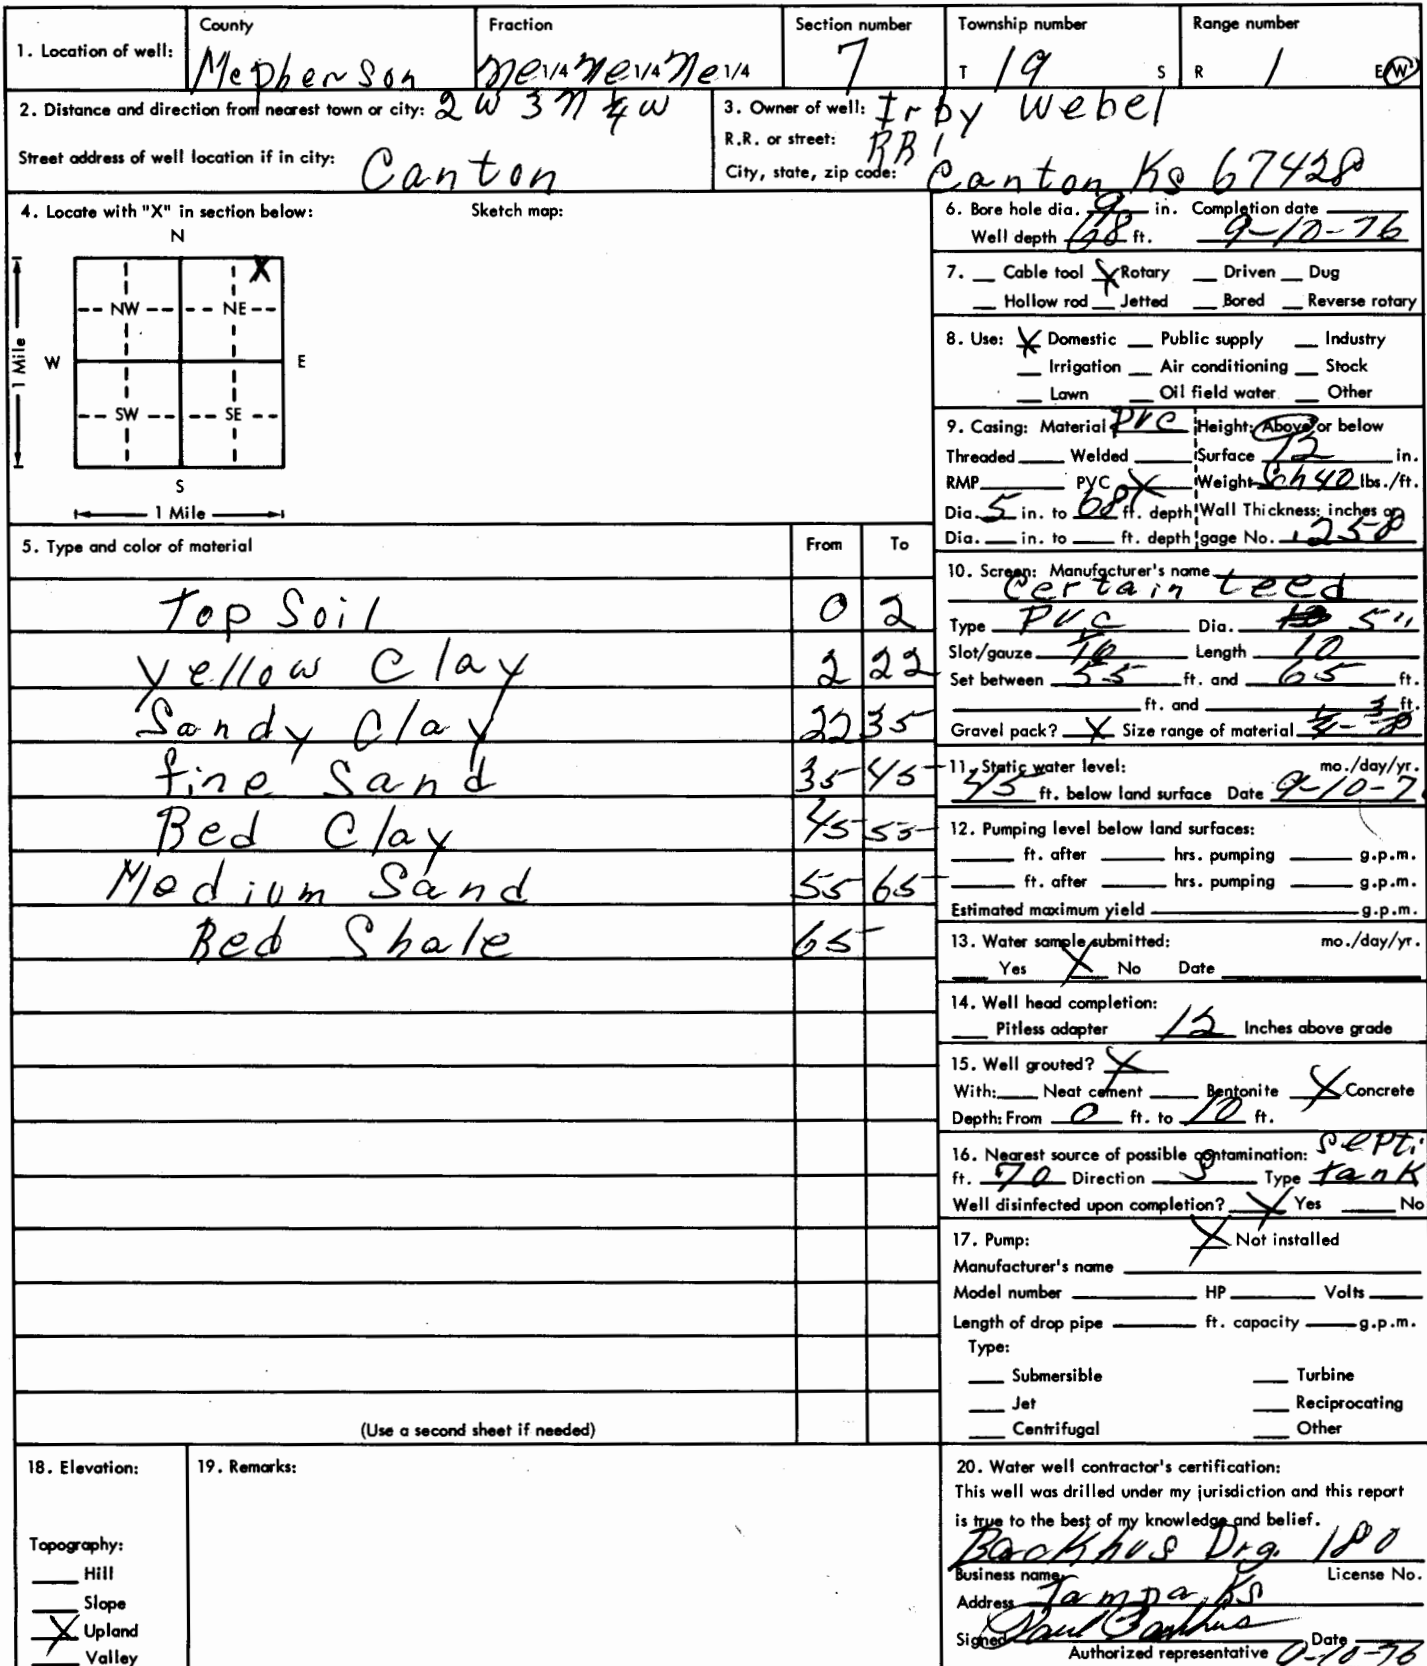 1. Location of well: County McPherson Fraction Ne 1/4 Ne 1/4 Ne 1/4 Section number 7 Township number T 19 S Range number R 1 E (W)
2. Distance and direction from nearest town or city: 2 W 3 N ¼ W
Street address of well location if in city: Canton
3. Owner of well: Irby Webel
R.R. or street: RR 1
City, state, zip code: Canton Ks 67428
4. Locate with "X" in section below: Sketch map:
N
X
NW NE
W E
1 Mile
SW SE
S
1 Mile
5. Type and color of material From To
Top Soil 0 2
yellow Clay 2 22
Sandy Clay 22 35
fine Sand 35 45
Bed Clay 45 55
Medium Sand 55 65
Bed Shale 65
(Use a second sheet if needed)
6. Bore hole dia. 9 in. Completion date
Well depth 68 ft. 9-10-76
7. Cable tool X Rotary Driven Dug
Hollow rod Jetted Bored Reverse rotary
8. Use: X Domestic Public supply Industry
Irrigation Air conditioning Stock
Lawn Oil field water Other
9. Casing: Material PVC Height: Above or below
Threaded Welded Surface 12 in.
RMP PVC X Weight Sch 40 lbs./ft.
Dia. 5 in. to 68 ft. depth Wall Thickness: inches or
Dia. in. to ft. depth gage No. .258
10. Screen: Manufacturer's name
Certain teed
Type PVC Dia. 5"
Slot/gauze Length 10
Set between 55 ft. and 65 ft.
ft. and ft.
Gravel pack? X Size range of material
11. Static water level: mo./day/yr.
45 ft. below land surface Date 9-10-7
12. Pumping level below land surfaces:
ft. after hrs. pumping g.p.m.
ft. after hrs. pumping g.p.m.
Estimated maximum yield g.p.m.
13. Water sample submitted: mo./day/yr.
Yes X No Date
14. Well head completion:
Pitless adapter 12 Inches above grade
15. Well grouted? X
With: Neat cement Bentonite X Concrete
Depth: From 0 ft. to 10 ft.
16. Nearest source of possible contamination: Septi
ft. 70 Direction S Type tank
Well disinfected upon completion? X Yes No
17. Pump: X Not installed
Manufacturer's name
Model number HP Volts
Length of drop pipe ft. capacity g.p.m.
Type:
Submersible Turbine
Jet Reciprocating
Centrifugal Other
18. Elevation:
Topography:
Hill
Slope
X Upland
Valley
19. Remarks:
20. Water well contractor's certification:
This well was drilled under my jurisdiction and this report
is true to the best of my knowledge and belief.
Backhus Drg. 180
Business name License No.
Address Tampa, Ks
Signed Paul Backhus Date
Authorized representative 9-10-76